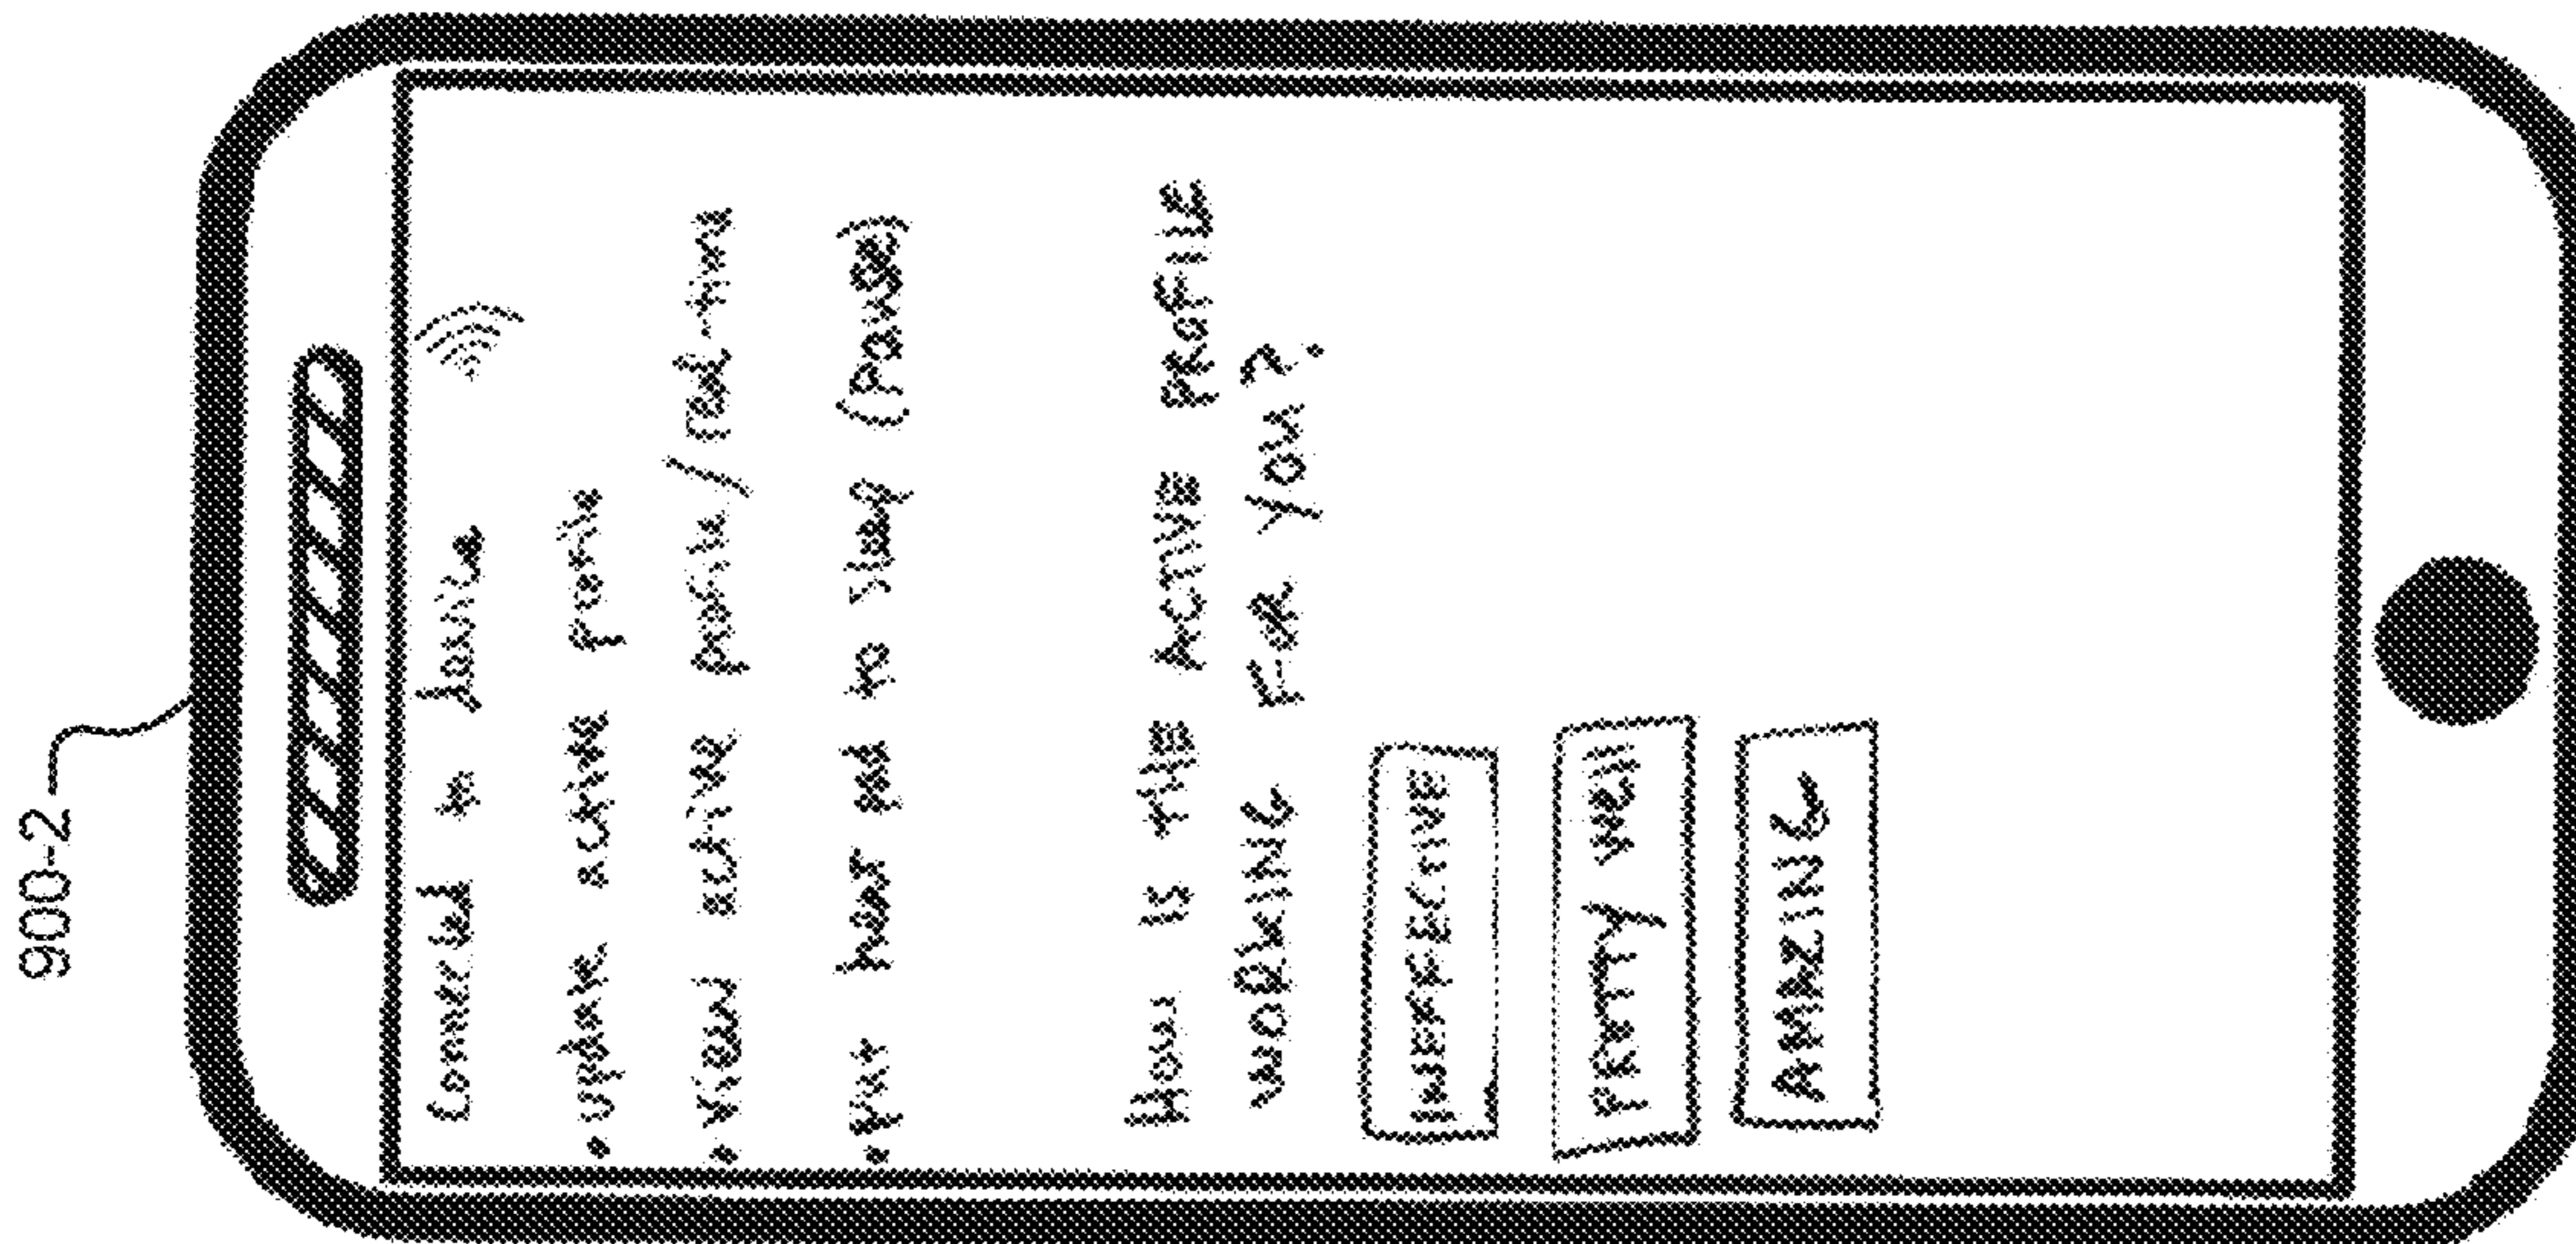 900-2
Connected to Jamie
• update active profile
• View active profile/real-time
• Put heat pad to sleep (Pause)
How is THE ACTIVE PROFILE
WORKING FOR YOU?
INEFFECTIVE
PRETTY WELL
AMAZING